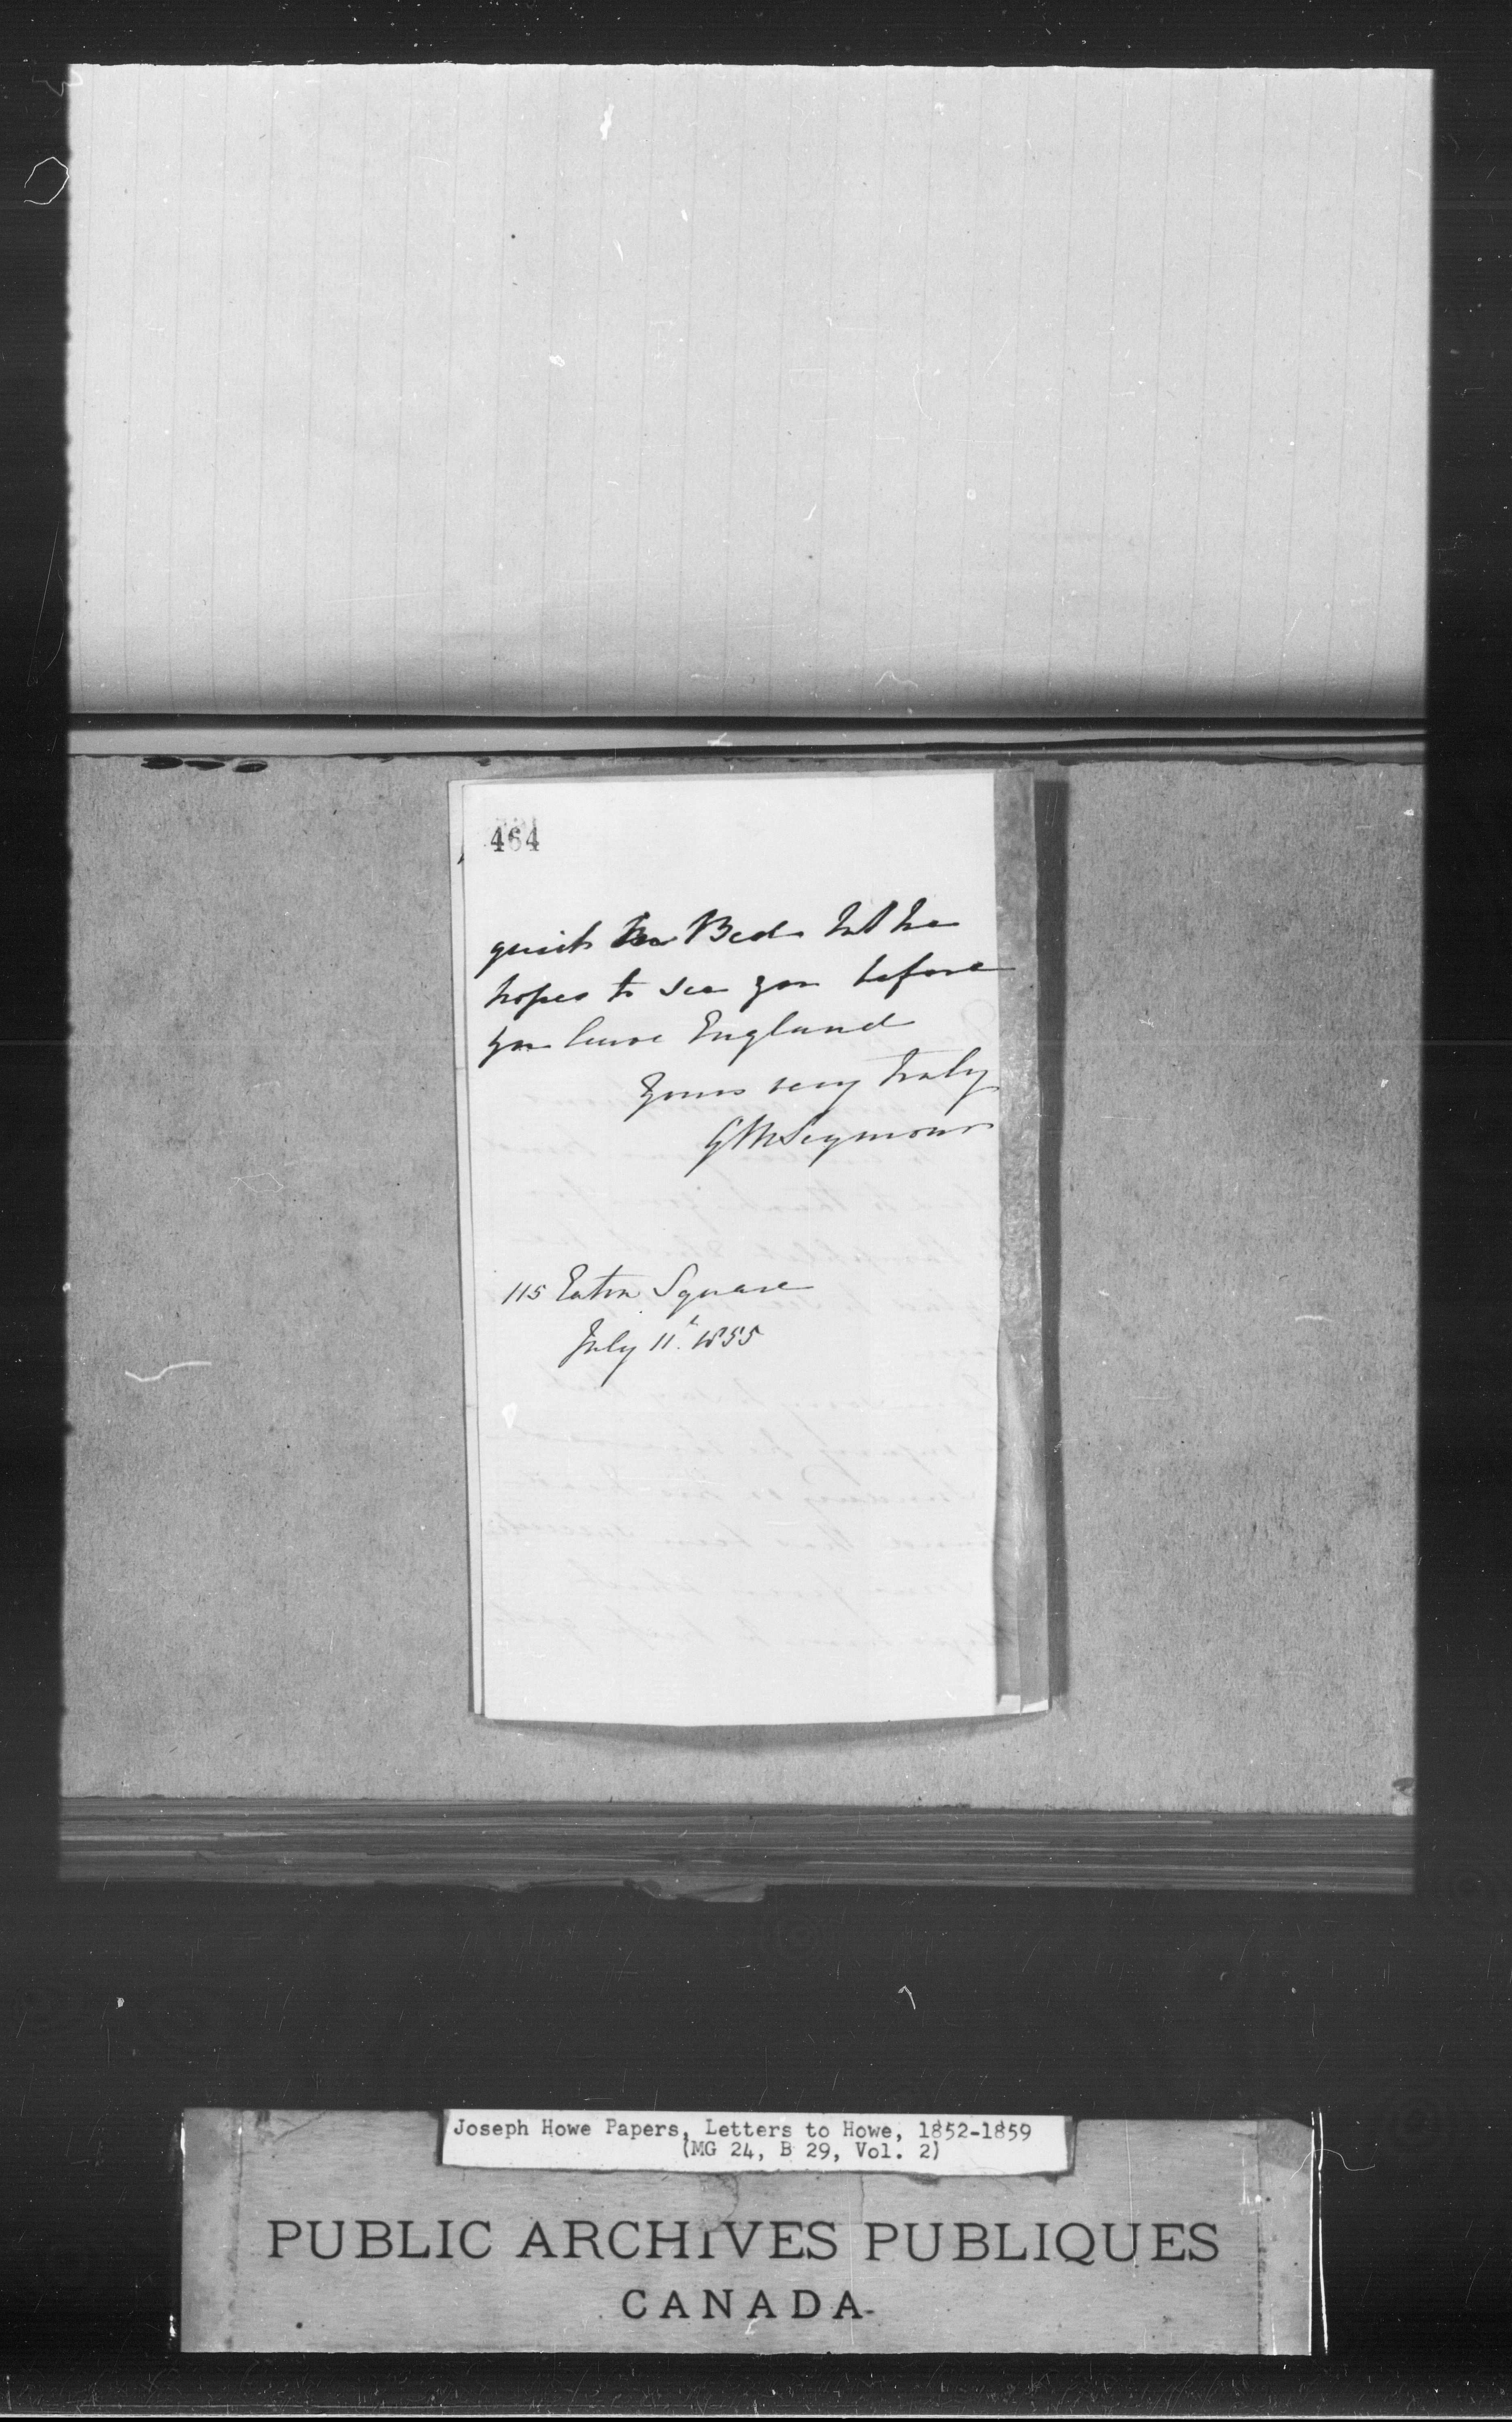 464
quit his Bed but he
hopes to see you before
you leave England
Yours very truly
GMSeymour
115 Eaton Square
July 11th 1855
Joseph Howe Papers, Letters to Howe, 1852-1859
(MG 24, B 29, Vol. 2)
PUBLIC ARCHIVES PUBLIQUES
CANADA